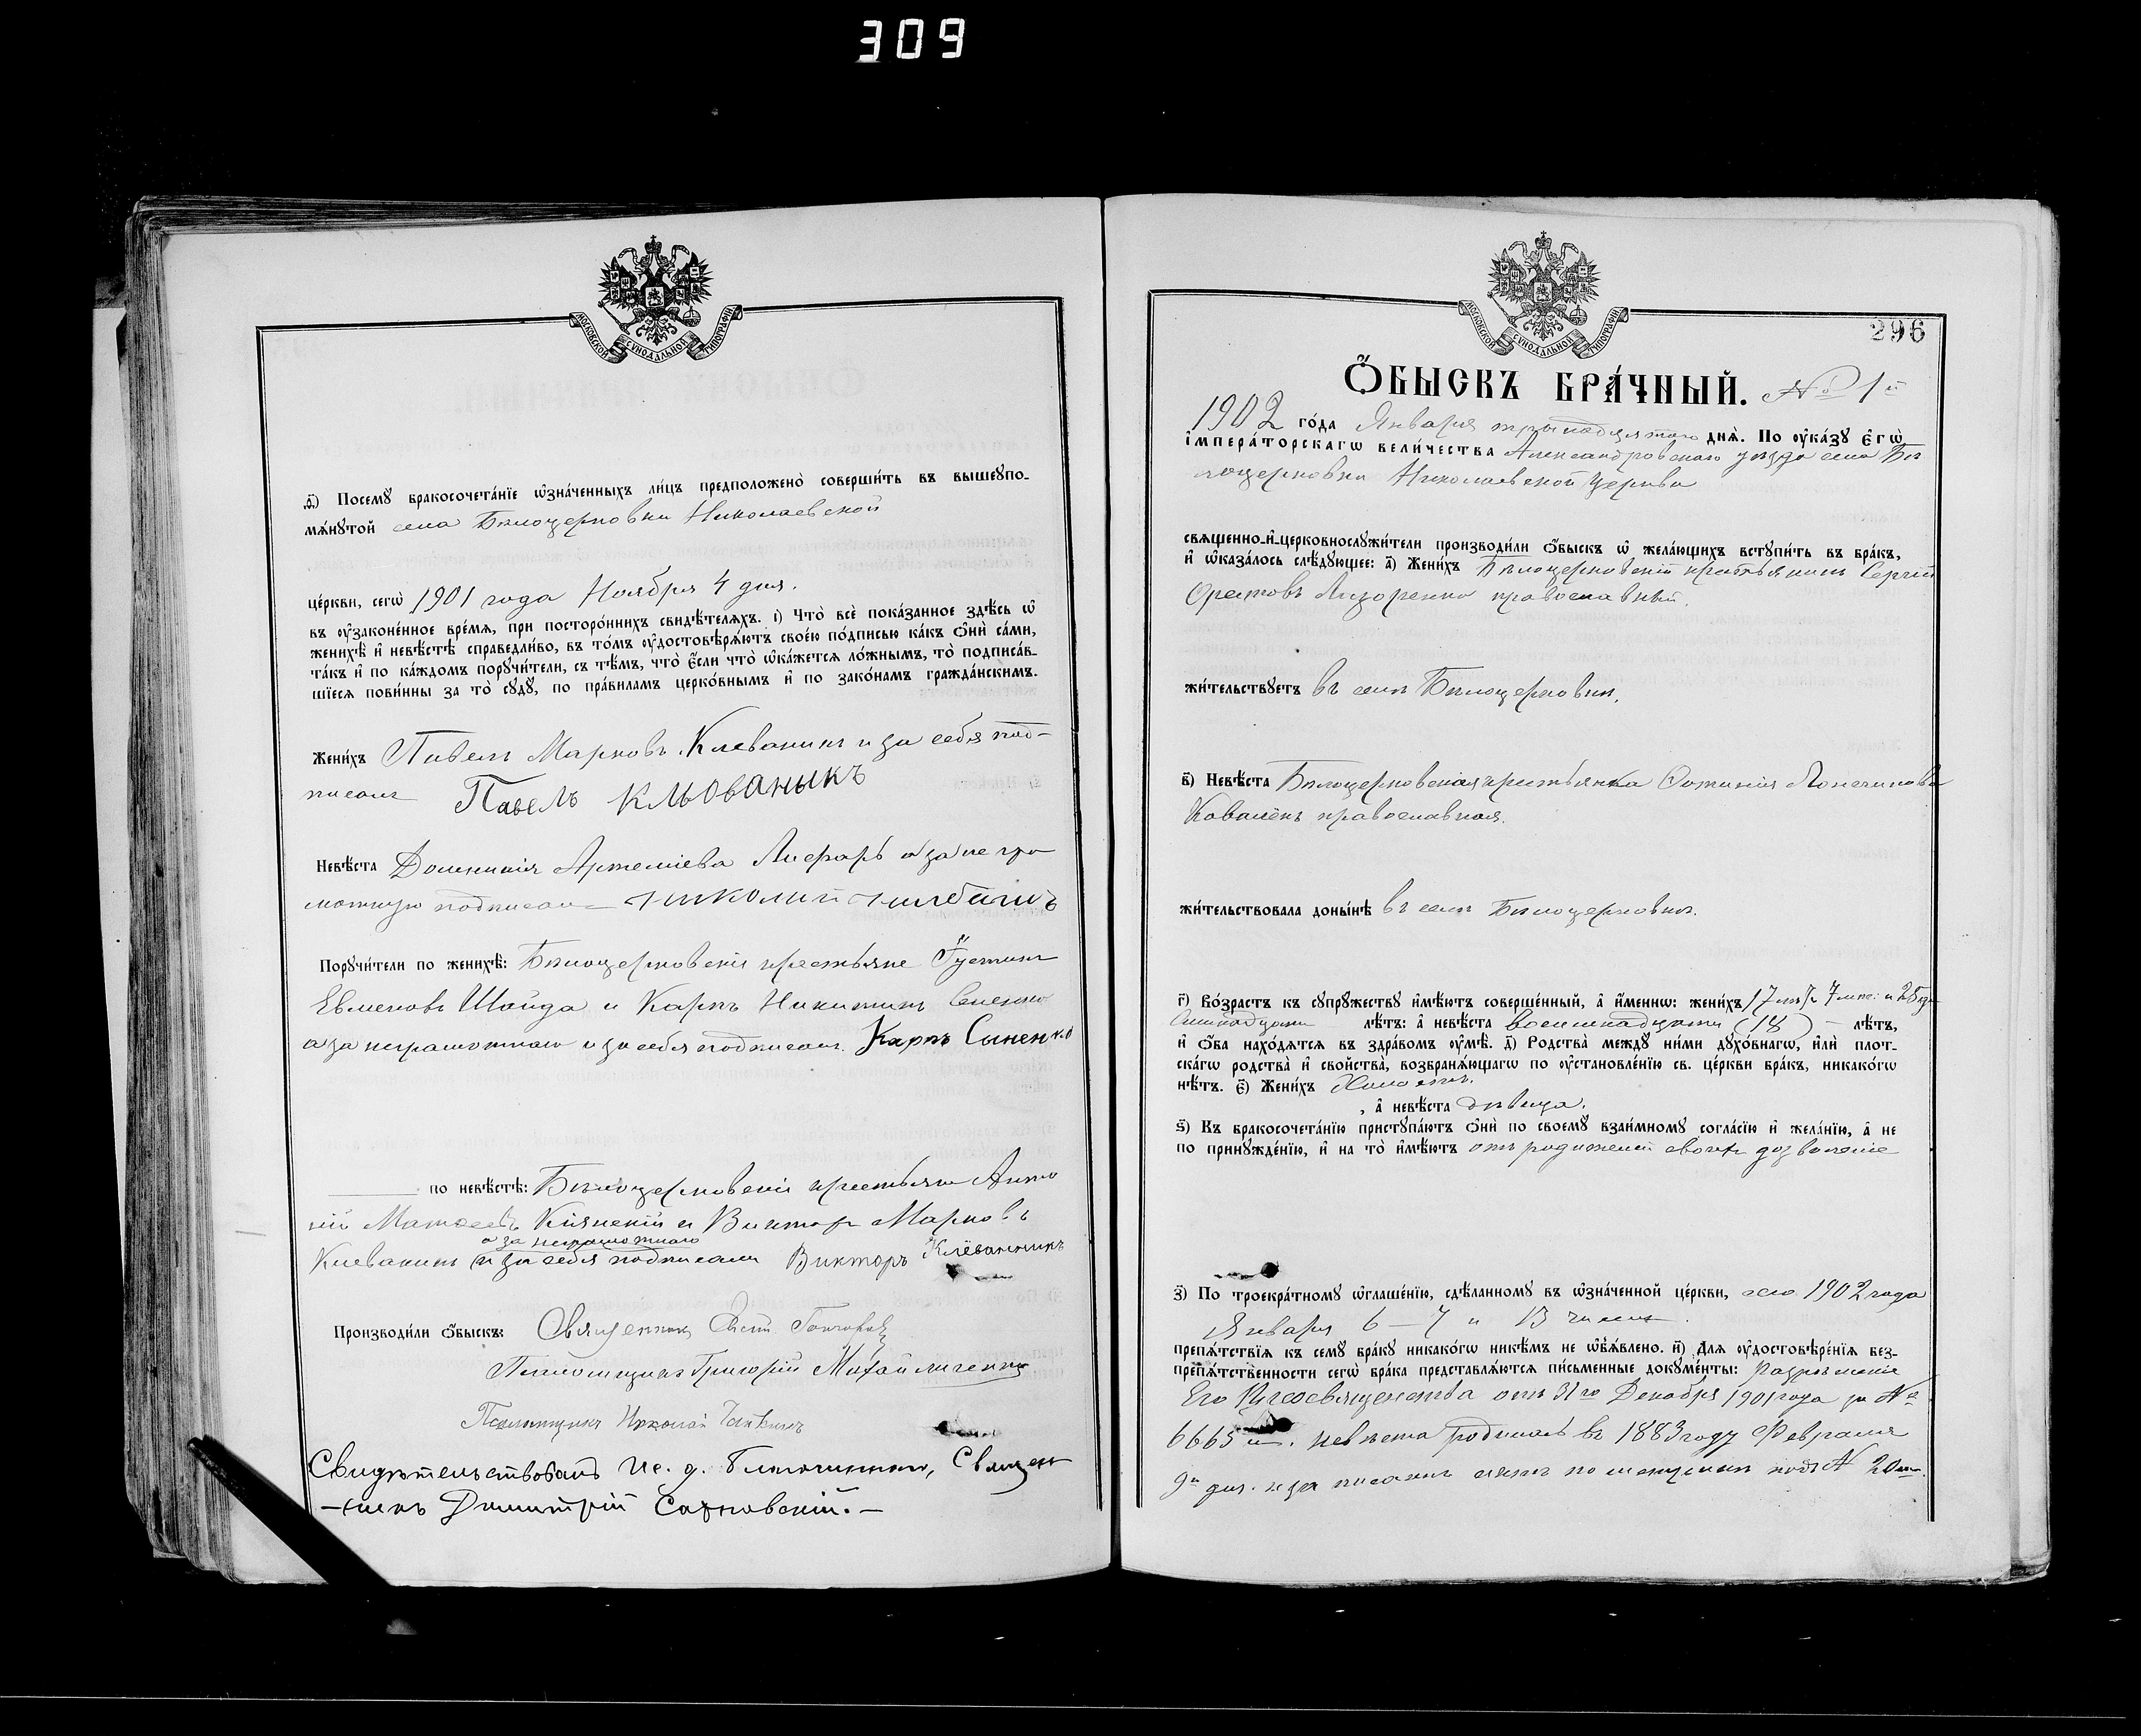 309
МОСКОВСКОЙ СѴНОДАЛЬНОЙ ТИПОГРАФІИ
ѳ҃) Посемꙋ бракосочета́нїе ѡ҆зна́ченныхъ ли́цъ предположено̀ соверши́ть въ вышеꙋпо-
мѧ́нꙋтой села Бѣлоцерковки Николаевской
це́ркви, сегѡ̀ 1901 года Ноября 4 дня.
въ ᲂу҆зако́ненное вре́мѧ, при посторо́ннихъ свидѣ́телѧхъ. і҃) Что̀ всѐ пока́занное здѣ́сь ѡ҆
женихѣ̀ и҆ невѣ́стѣ справедли́во, въ то́мъ ᲂу҆достовѣрѧ́ютъ свое́ю по́дписью ка́къ ѻ҆нѝ са́ми,
та́къ и҆ по ка́ждомъ порꙋчи́тели, съ тѣ́мъ, что̀ є҆́сли что̀ ѡ҆ка́жетсѧ ло́жнымъ, то̀ подписа́в-
шїесѧ пови́нны за то̀ сꙋдꙋ̀, по пра́виламъ церко́внымъ и҆ по зако́намъ гражда́нскимъ.
Жени́хъ Павелъ Марковъ Клеваникъ и за себя под-
писалъ Павелъ Кльованыкъ
Невѣ́ста Домникія Артеміева Лифарь а за негра
мотную подписалъ Николай
Порꙋчи́тели по женихѣ̀: Бѣлоцерковскія крестьяне Густинъ
Евменовъ Шайда и Карпъ Никитинъ Сиенко
а за неграмотнаго и за себя подписалъ Карпъ Сыненко
по невѣ́стѣ: Бѣлоцерковскія крестьяне Анто
ній Матвеевъ Кіянскій и Викторъ Марковъ
а за неграмотнаго
Клеваникъ и за себя подписалъ Викторъ Клёванникъ
Производи́ли ѻ҆́быскъ: Священникъ Гончаровъ
Псаломщикъ Григорій Михайличенко
Псаломщикъ Николай
Свидѣтельствовалъ Ис. д. Благочиннаго, Священ
-никъ Димитрій Сахновскій.-
МОСКОВСКОЙ СѴНОДАЛЬНОЙ ТИПОГРАФІИ
296
Ѻ҆́БЫСКЪ БРА́ЧНЫЙ. № 1й
1902 го́да Января тринадцатаго днѧ̀. По ᲂу҆ка́зꙋ є҆гѡ̀
і҆мпера́торскагѡ вели́чества Александровскаго уѣзда села Бѣ
лоцерковки Николаевской Церкви
свѧщенно-и҆-церковнослꙋжи́тели производи́ли ѻ҆́быскъ ѡ҆ жела́ющихъ встꙋпи́ть въ бра́къ,
и҆ ѡ҆каза́лось слѣ́дꙋющее: а҃) Жени́хъ Бѣлоцерковскій крестьянинъ Сергій
Орестовъ Лизоренко православный.
жи́тельствꙋетъ въ селѣ Бѣлоцерковкѣ.
в҃) Невѣ́ста Бѣлоцерковская крестьянка Фотинія Лонгинова
Ковалёнъ православная.
жи́тельствовала доны́нѣ въ селѣ Бѣлоцерковкѣ.
г҃) Во́зрастъ къ сꙋпрꙋ́жествꙋ и҆мѣ́ютъ соверше́нный, а҆ и҆́меннѡ: жени́хъ 17 лѣтъ 7 мѣс. и 25 дн.
Семнадцати лѣ́тъ: а҆ невѣ́ста восемнадцати (18) – лѣ́тъ,
и҆ ѻ҆́ба нахо́дѧтсѧ въ здра́вомъ ᲂу҆мѣ̀. д҃) Родства̀ междꙋ̀ ни́ми дꙋхо́внагѡ, и҆лѝ плот-
ска́гѡ родства̀ и҆ сво́йства, возбранѧ́ющагѡ по ᲂу҆становле́нїю св. це́ркви бра́къ, никако́гѡ
нѣ́тъ. є҃) Жени́хъ Холостъ.
, а҆ невѣ́ста дѣвица.
ѕ҃) Къ бракосочета́нїю пристꙋпа́ютъ ѻ҆нѝ по своемꙋ̀ взаи́мномꙋ согла́сїю и҆ жела́нїю, а҆ не
по принꙋжде́нїю, и҆ на то̀ и҆мѣ́ютъ отъ родителей своихъ дозволеніе
з҃) По троекра́тномꙋ ѡ҆глаше́нїю, сдѣ́ланномꙋ въ ѡ҆зна́ченной це́ркви, сего 1902 года
Января 6 – 7 и 13 числъ.
препѧ́тствїѧ къ семꙋ̀ бра́кꙋ никако́гѡ никѣ́мъ не ѡ҆б̾ѧ́влено. и҃) Для ᲂу҆достовѣре́нїѧ без-
препѧ́тственности сегѡ̀ бра́ка представлѧ́ютсѧ пи́сьменные докꙋме́нты: разрѣшеніе
Его Преосвященства отъ 31го Декабря 1901 года за №
6665 невѣста родилась въ 1883 году Февраля
9го дня. и записанъ актъ по метрикамъ подъ № 20